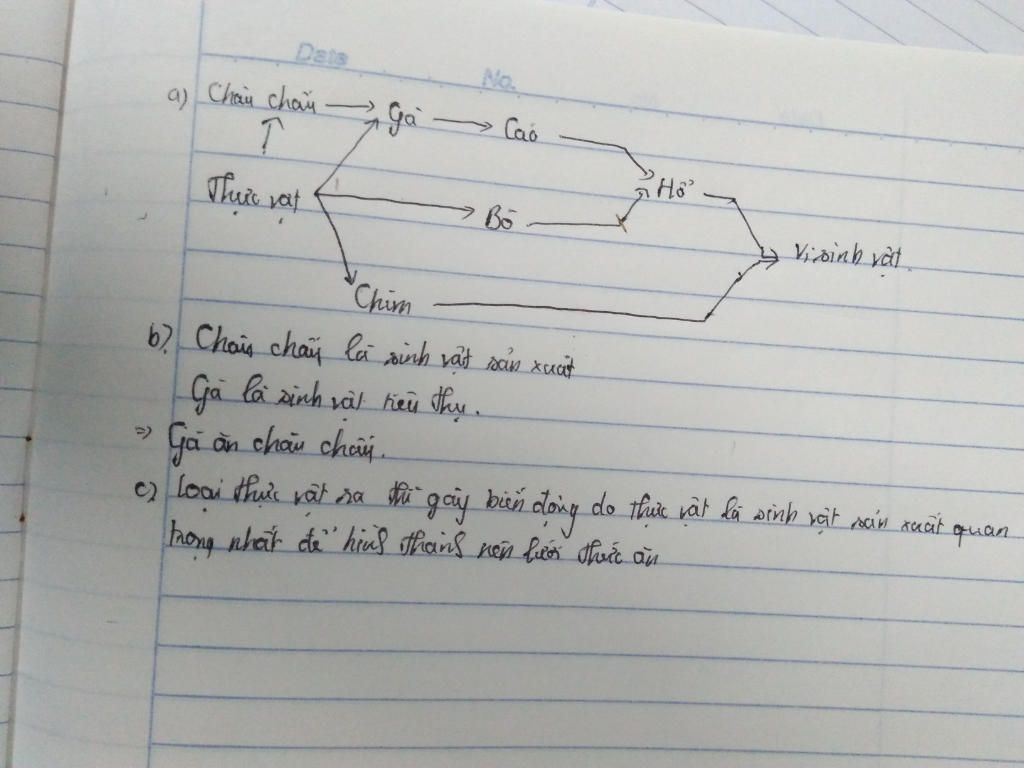 Date No.
a) Châu chấu → Gà → Cáo
Thực vật Hổ
Bò
Vi sinh vật.
Chim
b). Châu chấu là sinh vật sản xuất
Gà là sinh vật tiêu thụ.
=> Gà ăn châu chấu.
c) Loại thực vật ra thì gây biến động do thực vật là sinh vật sản xuất quan
trọng nhất để hình thành nên lưới thức ăn